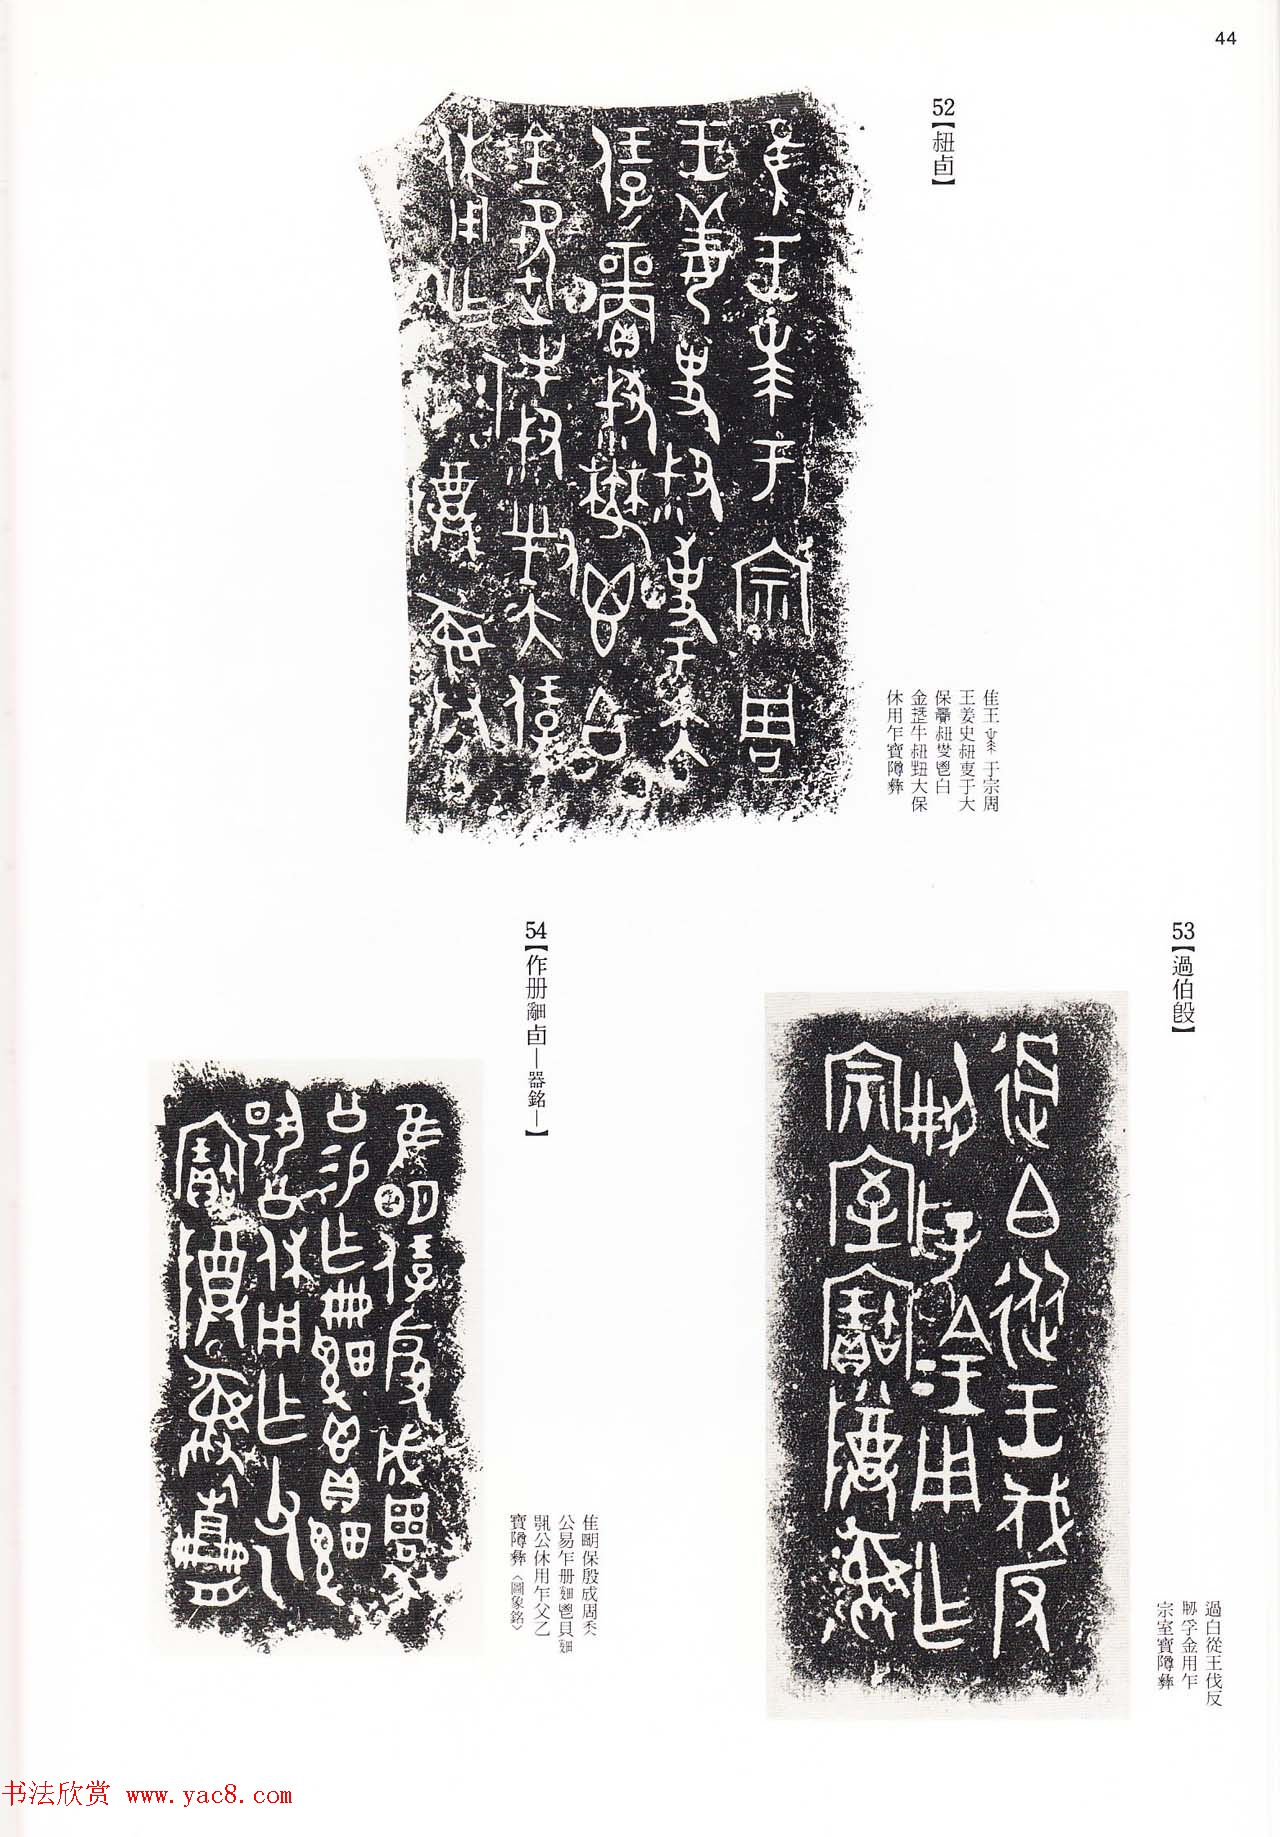 44
52【卣】
隹王于宗周
王姜史叔吏于大
保叔鬱鬯白
金牛叔大保
休用乍寶彝
53【過伯𣪘】
過白從王伐反
孚金用乍
宗室寶彝
54【作册卣—器銘—】
隹明保殷成周年
公易乍册鬯貝
公休用乍父乙
寶彝〈圖象銘〉
书法欣赏 www.yac8.com